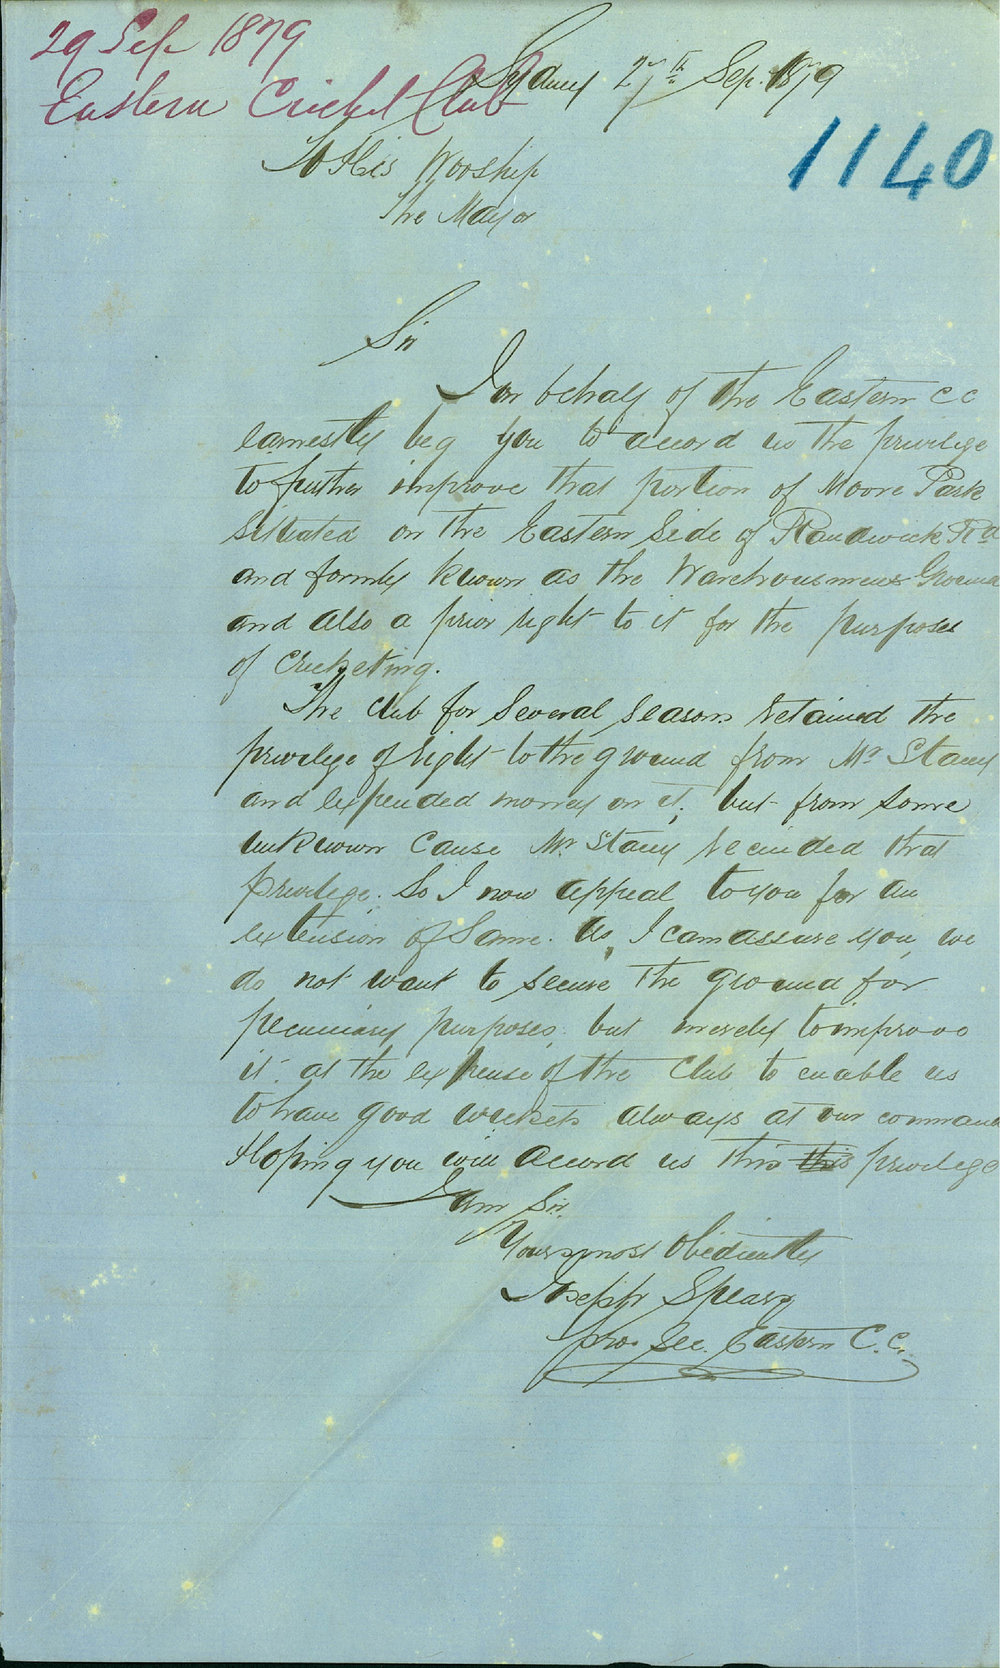 29 Sep 1879
Eastern Cricket Club
Sydney 27th Sep. 1879
1140
To His Worship
The Mayor
Sir
I on behalf of the Eastern C C
earnestly beg you to accord us the privilege
to further improve that portion of Moore Park
situated on the Eastern Side of Randwick Rd
and formly known as the Warehousmens Ground
and also a prior right to it for the purposes
of Cricketing.
The Club for Several Seasons retained the
privilege of right to the ground from Mr Stacey
and expended money on it; but from some
unknown Cause Mr Stacey recinded that
privilege. So I now appeal to you for an
extension of Same. As, I can assure you, we
do not want to secure the ground for
pecuniary purposes, but merely to improve
it at the expense of the Club to enable us
to have good wickets always at our command
Hoping you will accord us this this privilege
I am Sir.
Yours most Obediently
Joseph Speary
pro. Sec. Eastern C.C.